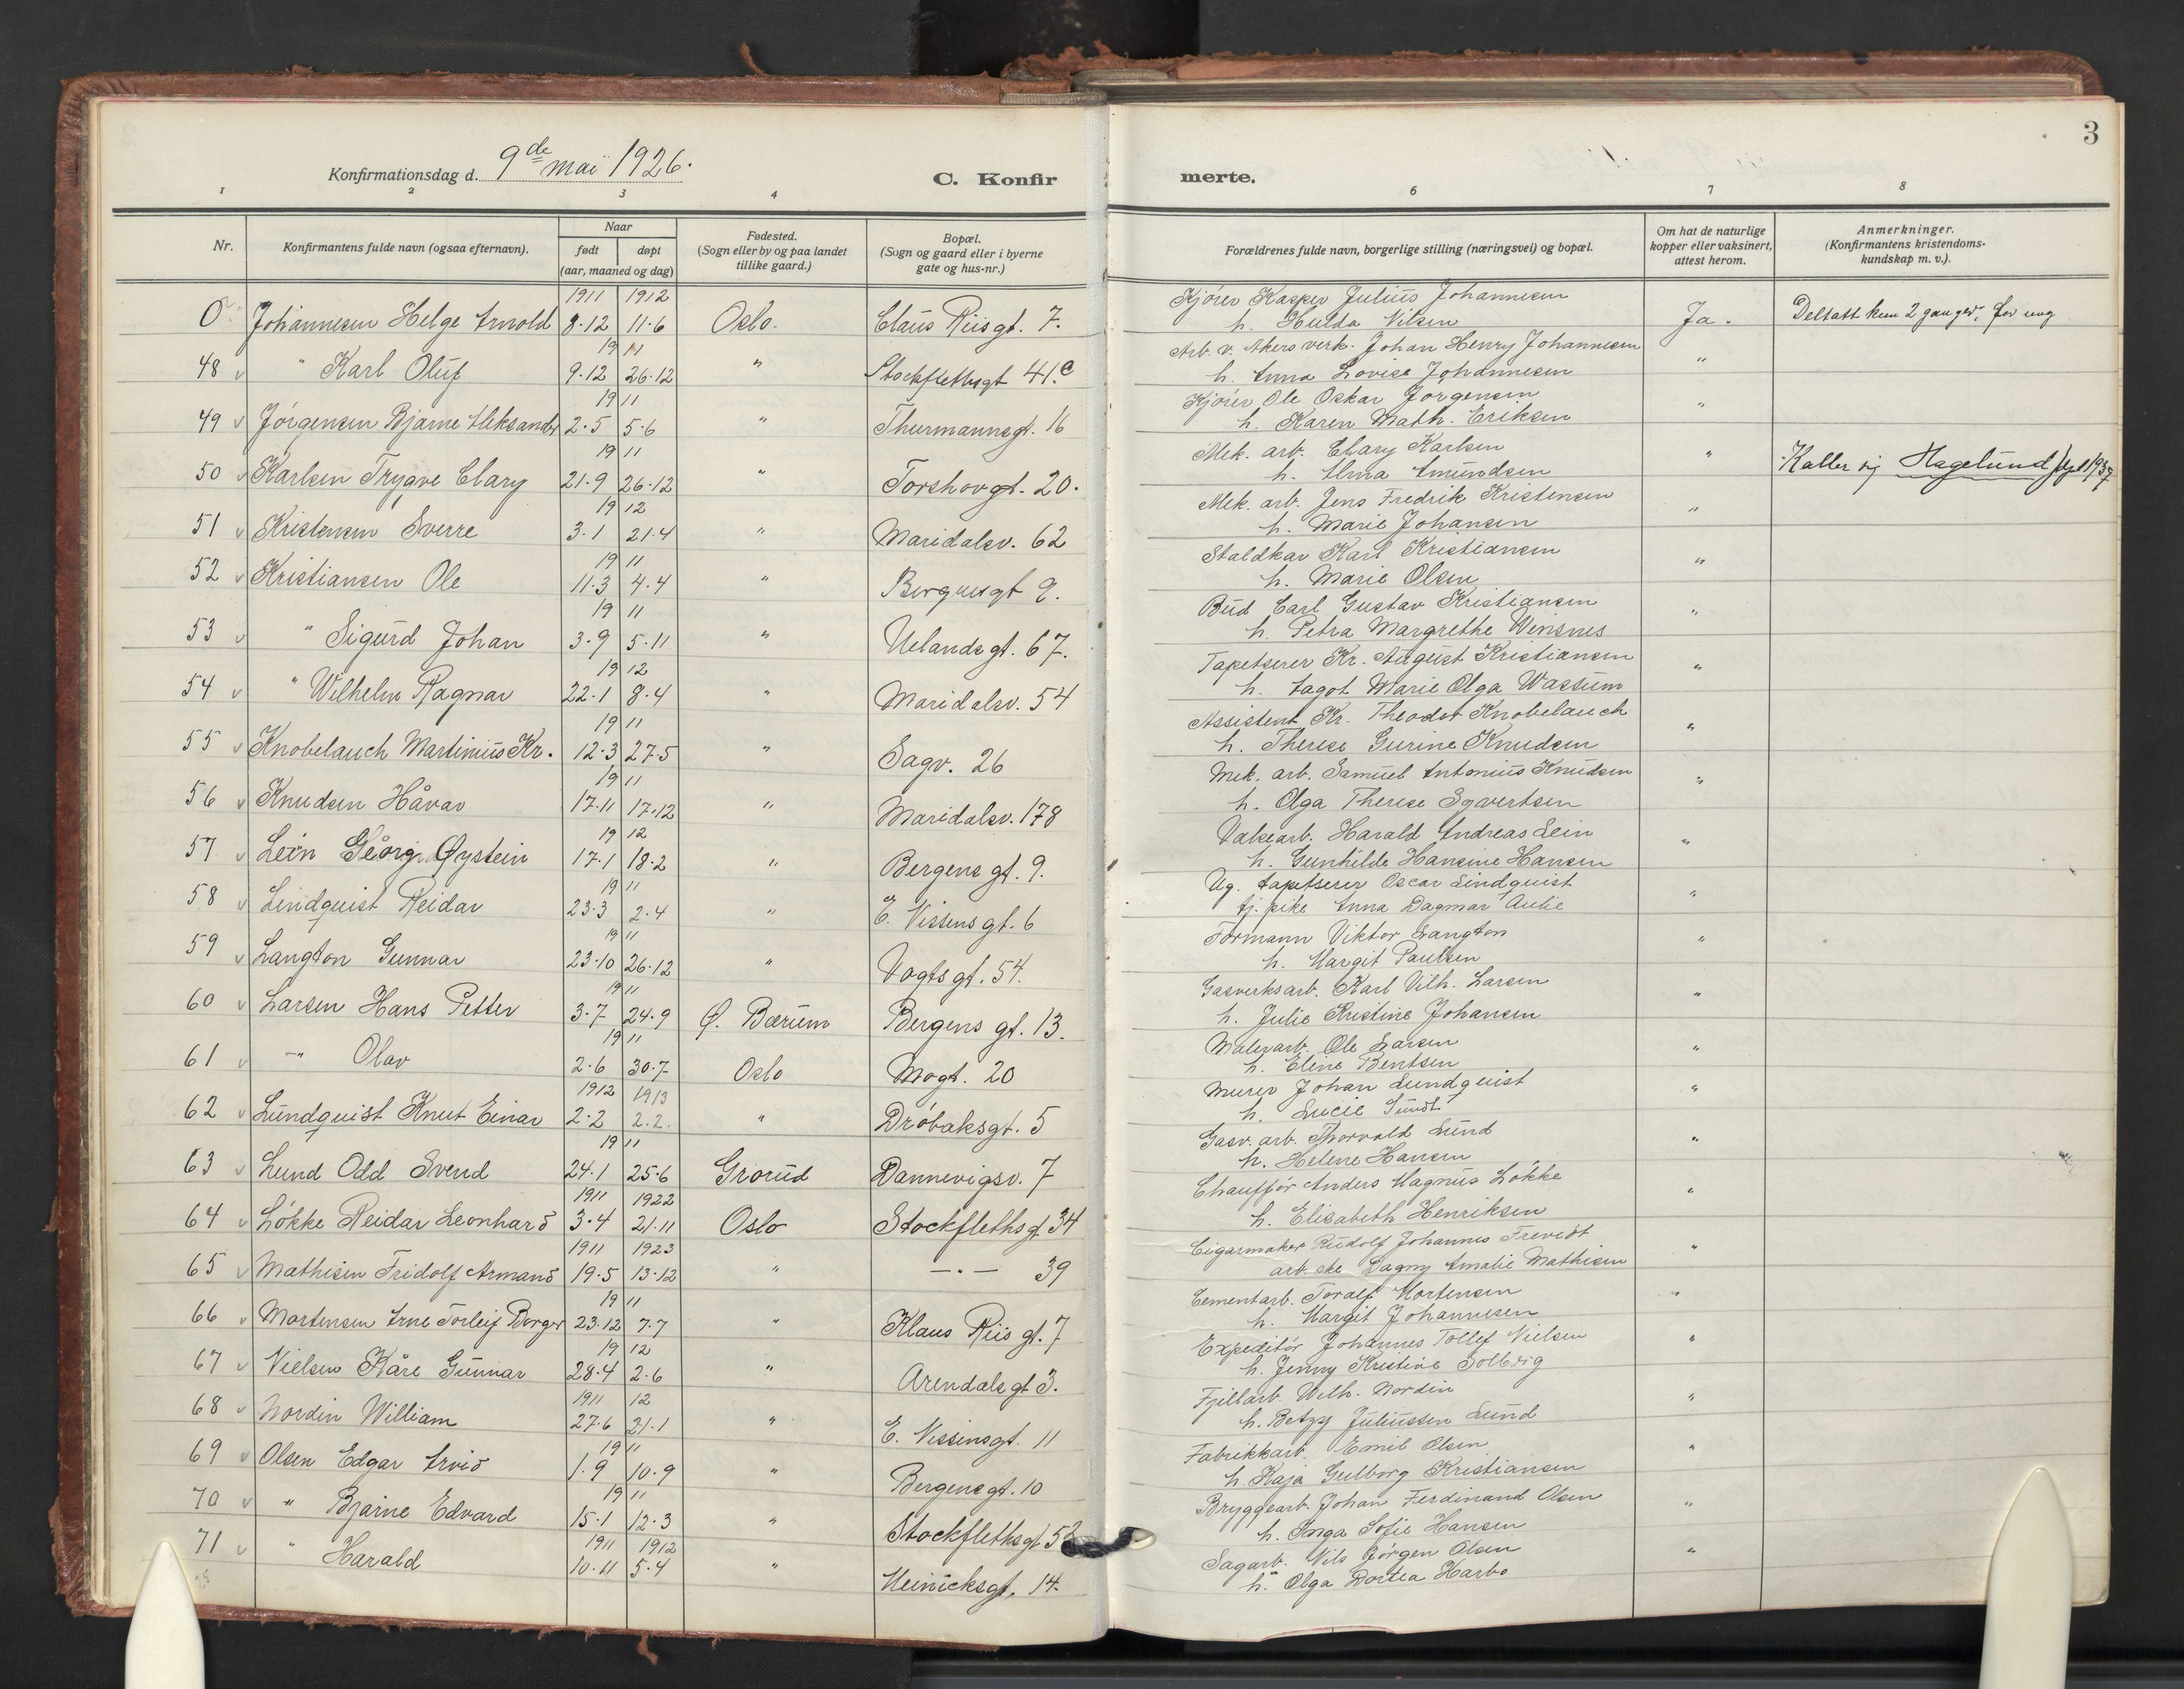 3
Konfirmationsdag d. 9de mai 1926.
C. Konfir
merte.
1 2 3 4 6 7 8
Nr.
Konfirmantens fulde navn (ogsaa efternavn).
Naar
født døpt
(aar, maaned og dag)
Fødested.
(Sogn eller by og paa landet
tillike gaard.)
Bopæl.
(Sogn og gaard eller i byerne
gate og hus-nr.)
Forældrenes fulde navn, borgerlige stilling (næringsvei) og bopæl.
Om hat de naturlige
kopper eller vaksinert,
attest herom.
Anmerkninger.
(Konfirmantens kristendoms-
kundskap m. v.).
1911 1912 Kjører Kasper Julius Johannesen
0 Johannesen Helge Arnold 8.12 11.6 Oslo. Claus Riisgt. 7. h. Hulda Nilsen Ja. Deltatt kun 2 ganger, for ung
19 11 Arb. v. Akers verk. Johan Henry Johannesen
48 v " Karl Oluf 9.12 26.12 " Stockflethsgt 41.c h. Anna Lovise Johannesen "
19 11 Kjører Ole Oskar Jørgensen
49 v Jørgensen Bjarne Aleksander 2.5 5.6 " Thurmannsgt. 16 h. Karen Math. Eriksen "
19 11 Mek. arb. Clary Karlsen
50 v Karlsen Trygve Clary 21.9 26.12 " Torshovgt. 20. h. Alma Amundsen " Kaller sig Hagelund
19 12 Mek. arb. Jens Fredrik Kristensen
51 v Kristensen Sverre 3.1 21.4 " Maridalsv. 62 h. Marie Johansen "
19 11 Staldkar Karl Kristiansen
52 v Kristiansen Ole 11.3 4.4 " Bergensgt 9. h. Marie Olsen "
19 11 Bud Carl Gustav Kristiansen
53 v " Sigurd Johan 3.9 5.11 " Uelandsgt. 67. h. Petra Margrethe Winsnes "
19 12 Tapetserer Kr. August Kristiansen
54 v " Wilhelm Ragnar 22.1 8.4 " Maridalsv. 54 h. Aagot Marie Olga Wassum "
19 11 Assistent Kr. Theodor Knobelauch
55 v Knobelauch Martinius Kr. 12.3 27.5 " Sagv. 26 h. Therese Gurine Knudsen "
19 11 Mek. arb. Samuel Antonius Knudsen
56 v Knudsen Håvar 17.11 17.12 " Maridalsv. 178 h. Olga Therese Syvertsen "
19 12 Valsearb. Harald Andreas Lein
57 v Lein Georg Øystein 17.1 18.2 " Bergens gt. 9. h. Gunhilde Hansine Hansen "
19 11 Ug. tapetserer Oscar Lindquist
58 v Lindquist Reidar 23.3 2.4 " E. Nissens gt. 6 tj. pike Anna Dagmar Aulie "
19 11 Formann Viktor Langton
59 v Langton Gunnar 23.10 26.12 " Vogts gt. 54. h. Margit Paulsen "
19 11 Gasverksarb. Karl Vilh. Larsen
60 v Larsen Hans Petter 3.7 24.9 Ø. Bærum Bergens gt. 13. h. Julie Kristine Johansen "
19 11 Malerarb. Ole Larsen
61 v -"- Olav 2.6 30.7 Oslo Mogt. 20 h. Eline Bentsen "
1912 1913 Murer Johan Lundquist
62 v Lundquist Knut Einar 2.2 2.2. " Drøbaksgt. 5 h. Lucie Sundt "
19 11 Gasv. arb. Thorvald Lund
63 v Lund Odd Svend 24.1 25.6 Grorud Dannevigsv. 7 h. Helene Hansen "
1911 1922 Chauffør Anders Magnus Løkke
64 v Løkke Reidar Leonhard 3.4 21.11 Oslo Stockflethsgt 34 h. Elisabeth Henriksen "
1911 1923 Cigarmaker Rudolf Johannes Trevidt
65 v Mathisen Fridolf Armand 19.5 13.12 " —•— 39 arb. ske Dagny Amalie Mathisen "
19 11 Cementarb. Toralf Mortensen
66 v Mortensen Arne Torleif Borger 23.12 7.7 " Klaus Riis gt. 7 h. Margit Johannesen "
19 12 Expeditør Johannes Tollef Nielsen
67 v Nielsen Kåre Gunnar 28.4 2.6 " Arendals gt 3. h. Jenny Kristine Solberg "
1911 12 Fjellarb. Wilh. Nordin
68 v Nordin William 27.6 21.1 " E. Nissensgt. 11 h. Betzy Juliussen Lund "
19 11 Fabrikkarb. Emil Olsen
69 v Olsen Edgar Arvid 1.9 10.9 " Bergensgt. 10 h. Kaja Gulborg Kristiansen "
19 11 Bryggearb. Johan Ferdinand Olsen
70 v " Bjarne Edvard 15.1 12.3 " Stockflethsgt 52 h. Inga Sofie Hansen "
1911 1912 Sagarb. Nils Jørgen Olsen
71 v " Harald 10.11 5.4 " Heinicksgt. 14. h. Olga Dortea Harbo "